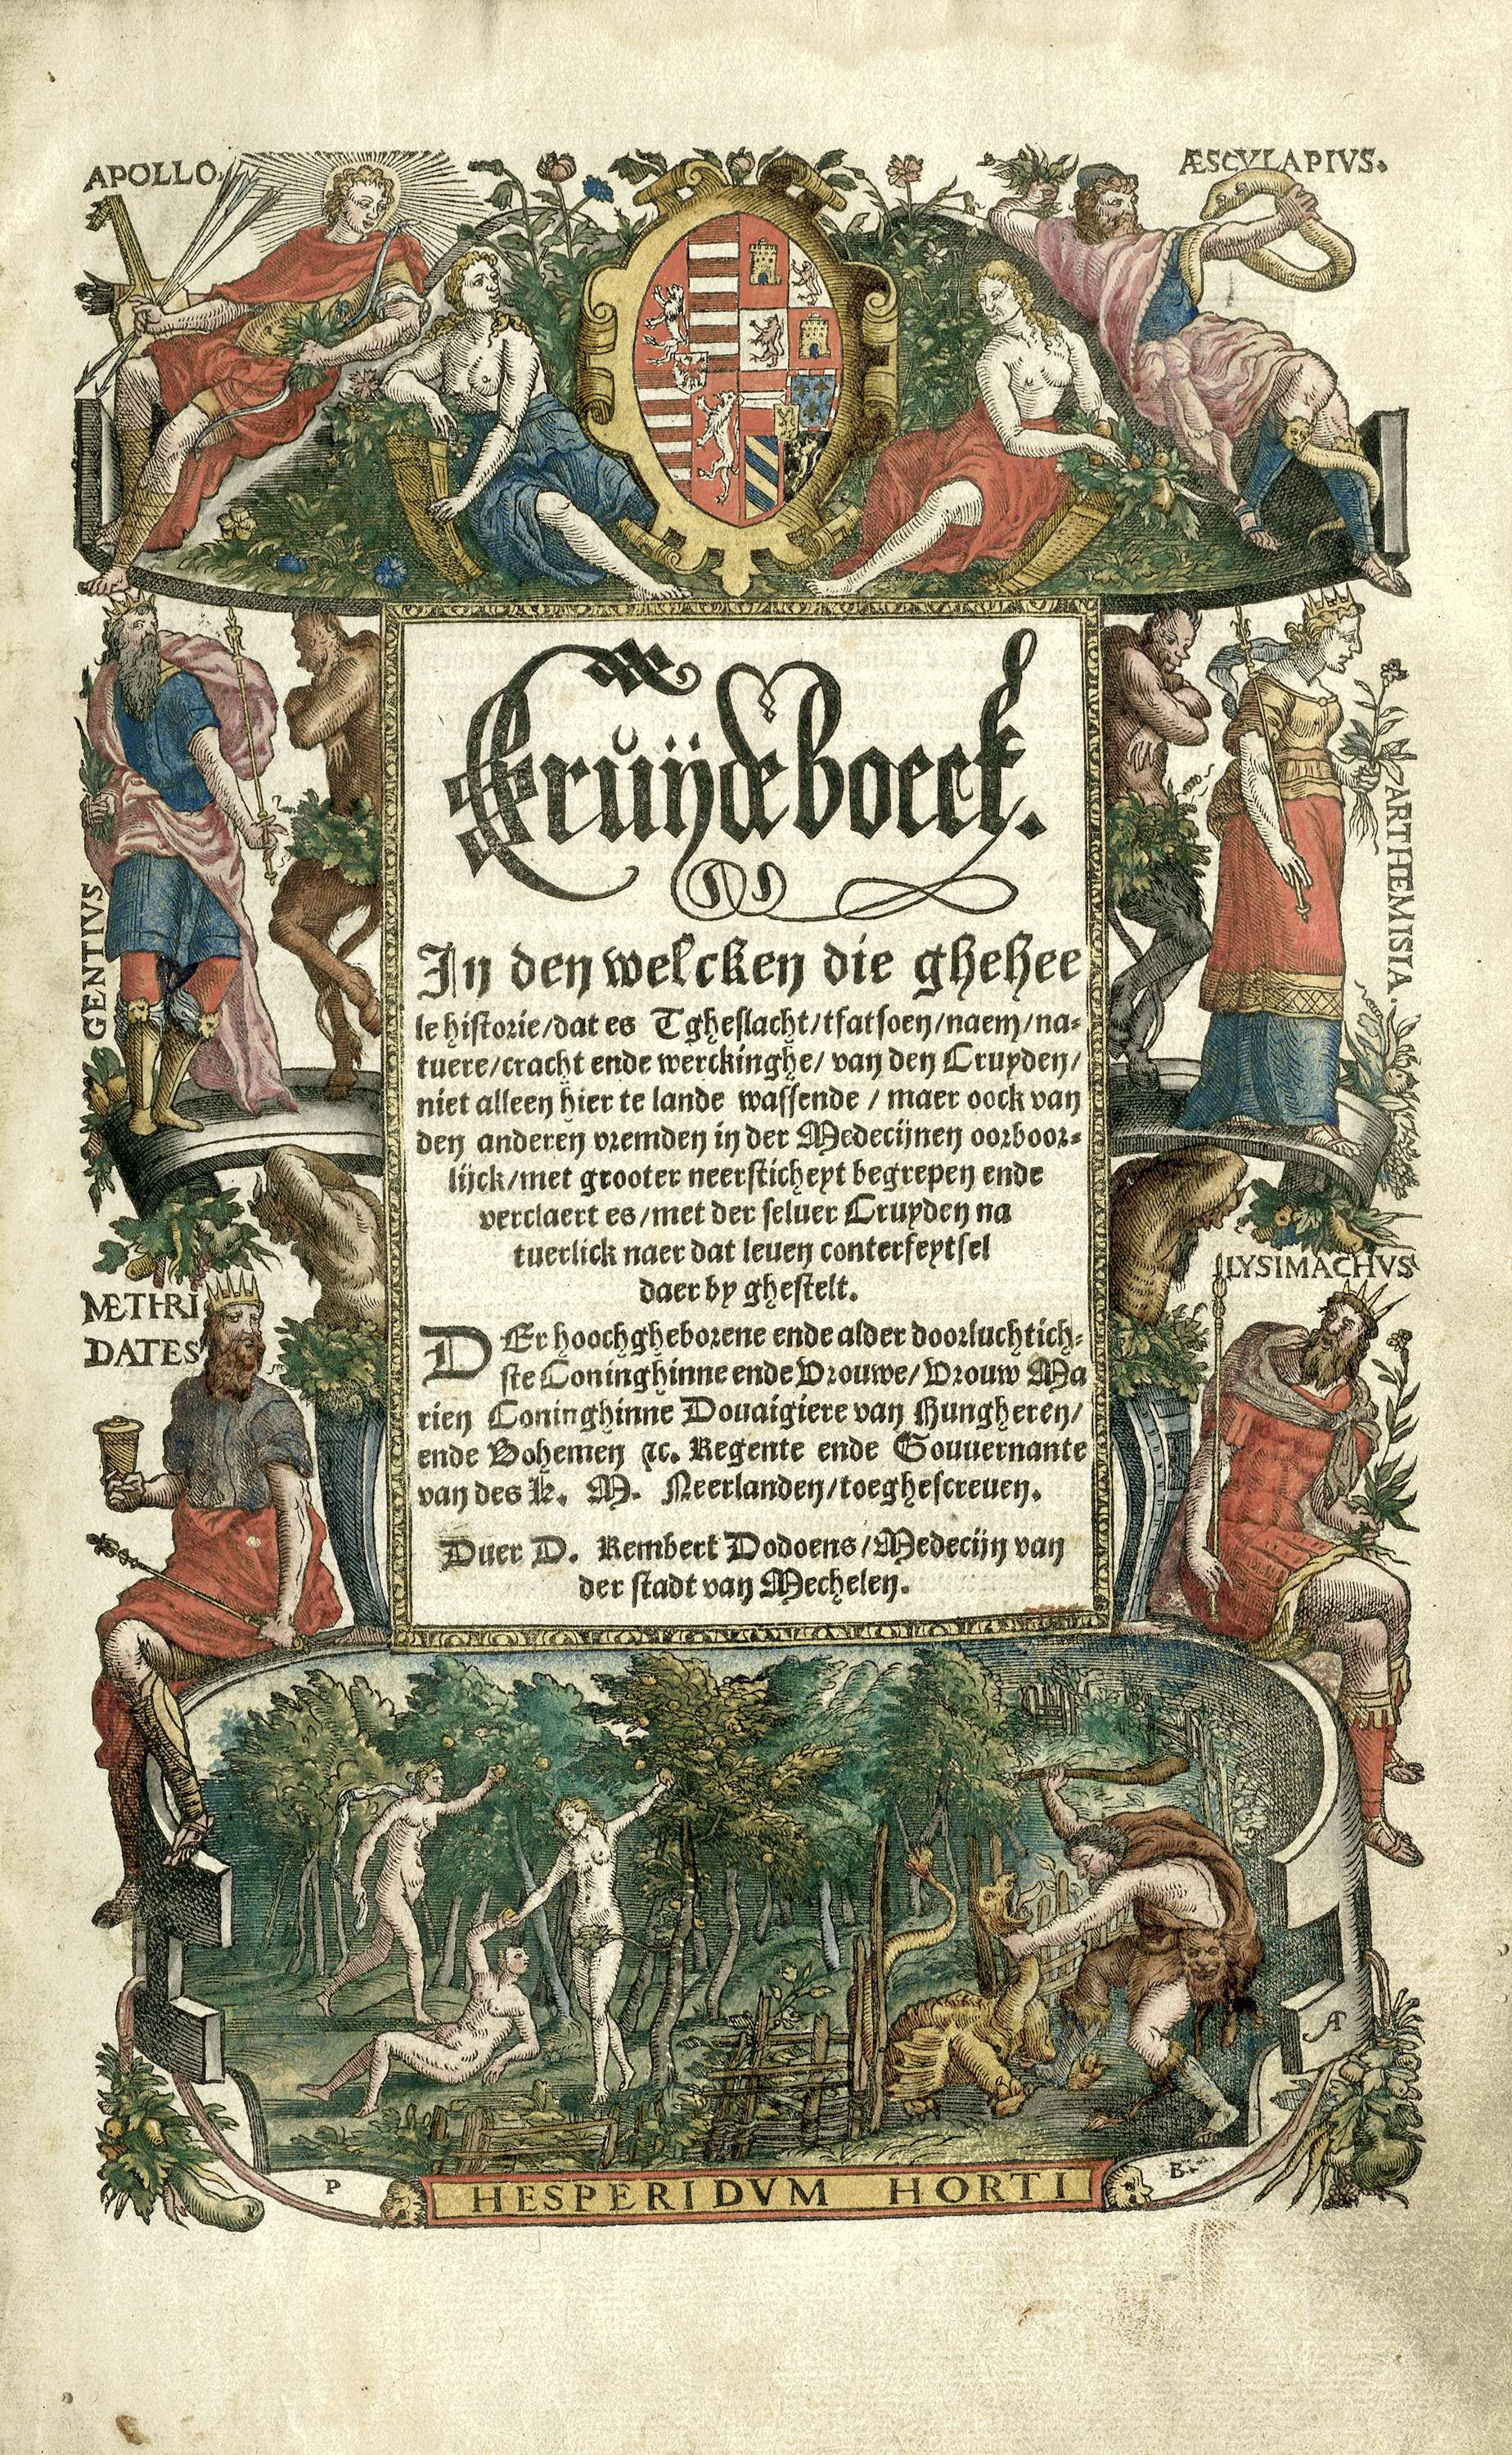 APOLLO.
ÆSCVLAPIVS.
Cruÿdeboeck.
In den welcken die ghehee
le historie/dat es Tgheslacht/tfatsoen/naem/na=
tuere/cracht ende werckinghe/ van den Cruyden/
niet alleen hier te lande wassende / maer oock van
den anderen vremden in der Medecijnen oorboor=
lijck/met grooter neersticheyt begrepen ende
verclaert es/met der seluer Cruyden na
tuerlick naer dat leuen conterfeytsel
daer by ghestelt.
DEr hoochgheborene ende alder doorluchtich=
ste Coninghinne ende Vrouwe/Vrouw Ma
rien Coninghinne Douaigiere van Hungheren/
ende Bohemen ꝛc. Regente ende Gouuernante
van des K. M. Neerlanden/toeghescreuen.
Duer D. Rembert Dodoens/Medecijn van
der stadt van Mechelen.
GENTIVS
ARTHEMISIA.
METHRI
DATES
LYSIMACHVS
A
P
B.
HESPERIDVM HORTI